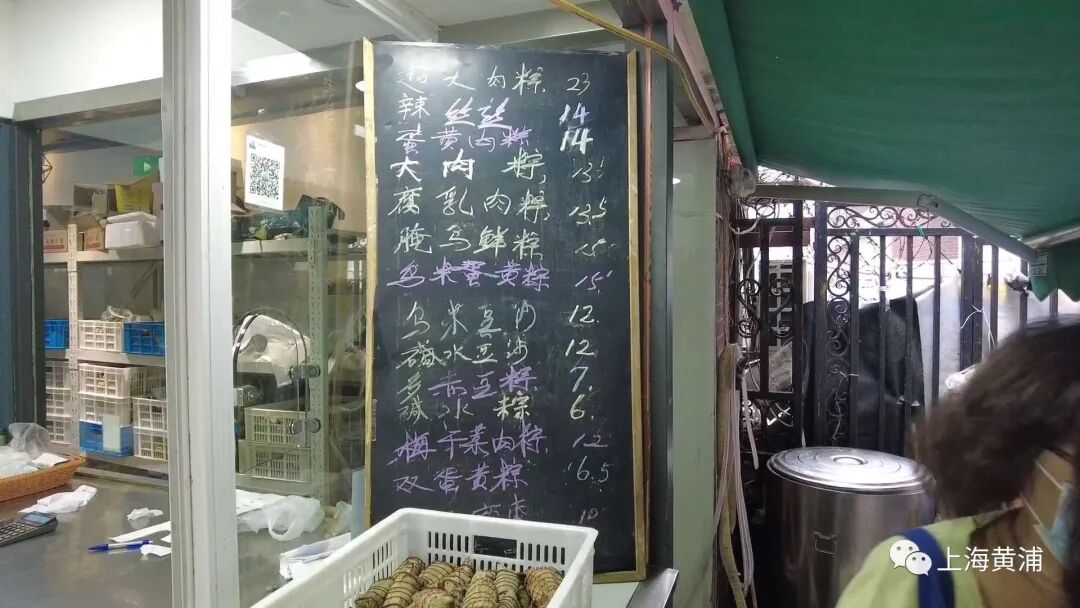 超大肉粽 23
辣丝丝 14
蛋黄肉粽 14
大肉粽 13.5
腐乳肉粽 13.5
腌乌鲜粽 15
乌米蛋黄粽 15
乌米豆沙 12
碱水豆沙 12
赤豆粽 7
水粽 6
梅干菜肉粽 12
双蛋黄粽 16.5
枣
上海黄浦